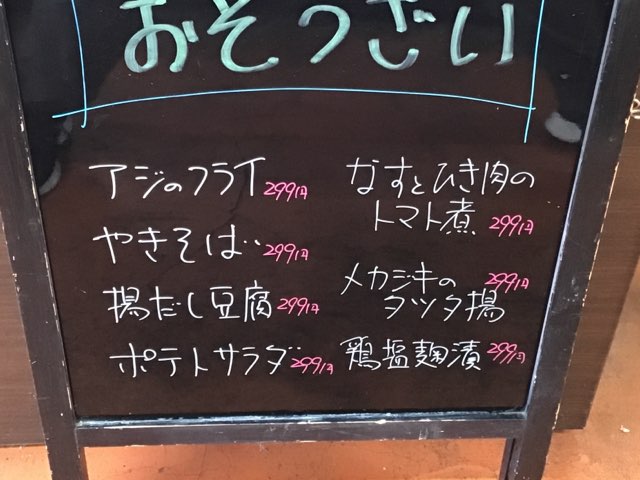 おそうざい
アジのフライ 299円
やきそば 299円
揚だし豆腐 299円
ポテトサラダ 299円
なすとひき肉の
トマト煮 299円
メカジキの 299円
タツタ揚
鶏塩麹漬 299円